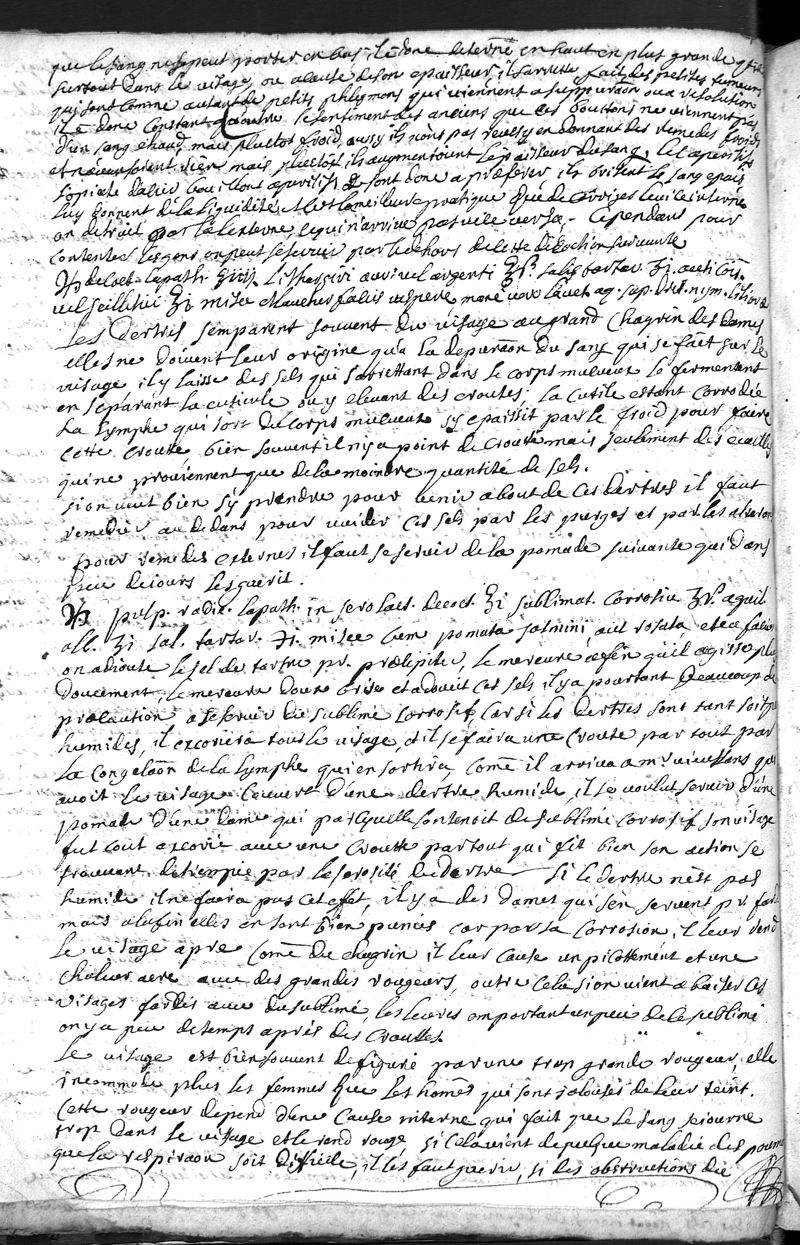 que le sang ne se peut porter en bas il è donc determé en haut en plus grande
surtout dans le visage, ou a cause de son epaisseur il sarrette fait des petites tumeurs
qui sont comme autant de petits phlegmons qui viennent a suppuraon ou a resolution
il è donc constant contre le sentiment des anciens que ces bouttons ne viennent pas
d'un sang chaud mais plustot froid, aussy ils nons pas reussy en donnant des remedes froids
et rien mais plustost ils augmentoient lepaisseur du sang, les aperitifs
bouillons aperitifs sont donc a præferer, ils brisent le sang epais
luy donnent de la liquidité et cest la meilleure pratique que de corriger le vice interne
on detruit par la lexterne ce qui n'arrive pas vice versa, - cependans pour
contenter les gens on peut se servir par le dehors de cette decoction suivante
les dertres s'emparent souvent du visage au grand chagrin des dames
elles ne doivent leur origine qu'a la depuraon du sang qui se fait sur le
visage il y laisse des sels qui sarrettant dans le corps muqueux le fermentent
en separant la cuticule ou y elevant des croutes; la cutile estant corrodée
la lymphe qui sort du corps muqueux s'y epaissit par le froid pour faire
cette croute bien souvent il n'y a point de croute mais seulement des ecailles
qui ne proviennent que de la moindre quantité de sels.
si on veut bien s'y prendre pour venir a bout de ces dertres il faut
remedier au dedans pour vuider ces sels par les purges et par les alterans
pour remedes externes il faut se servir de la pomade suivante qui dans
peu de jours les guerit.
pulp. radic. lapath. in sero lact. decoct. sublimat. corrosiu. aquil
alb. sal. tartar. misce cum pomata jasmini aut rosata,
on adioute le sel de tartre pr. præcipiter le mercure afin qu'il agisse plus
doucement, le mercure doux brise et adoucit ces sels il y a pourtant beaucoup de
præcaution a se servir du sublimé corrosif, car si les dertres sont tant soit peu
humides, il excoriera tous le visage, et il se faira une croute par tout par
la congelaon de la lymphe qui en sortira, come il arriva a mr vieussens qui
avoit le visage couvert d'une dertre humide, il se voulut servir d'une
pomade d'une dame qui parcequelle contenoit de sublimé corrosif son visage
fut tout excorié avec une croutte partout qui fit bien son action se
trouvant detrempée par la serosité de dertre si le dertre n'est pas
humide il ne faira pas cet effet, il y a des dames qui s'en servent pr. fard
mais a la fin elles en sont bien punies car par sa corrosion, il leur rend
le visage apre comè du chagrin il leur cause un picottement et une
chaleur acre avec des grandes rougeurs, outre cela si on vient a baiser ces
visages fardés avec du sublimé, les levres emportant un peu de ce sublimé
on y a peu de temps aprés des crouttes.
Le visage est bien souvent defiguré par une trop grande rougeur, elle
incommode plus les femmes que les homes qui sont jalouses de leur teint.
cette rougeur depend d'une cause interne qui fait que le sang sejourne
trop dans le visage et le rend rouge si cela vient de quelque maladie des poumons
que la respiraon soit difficile, il les faut guerir, si des obstructions du